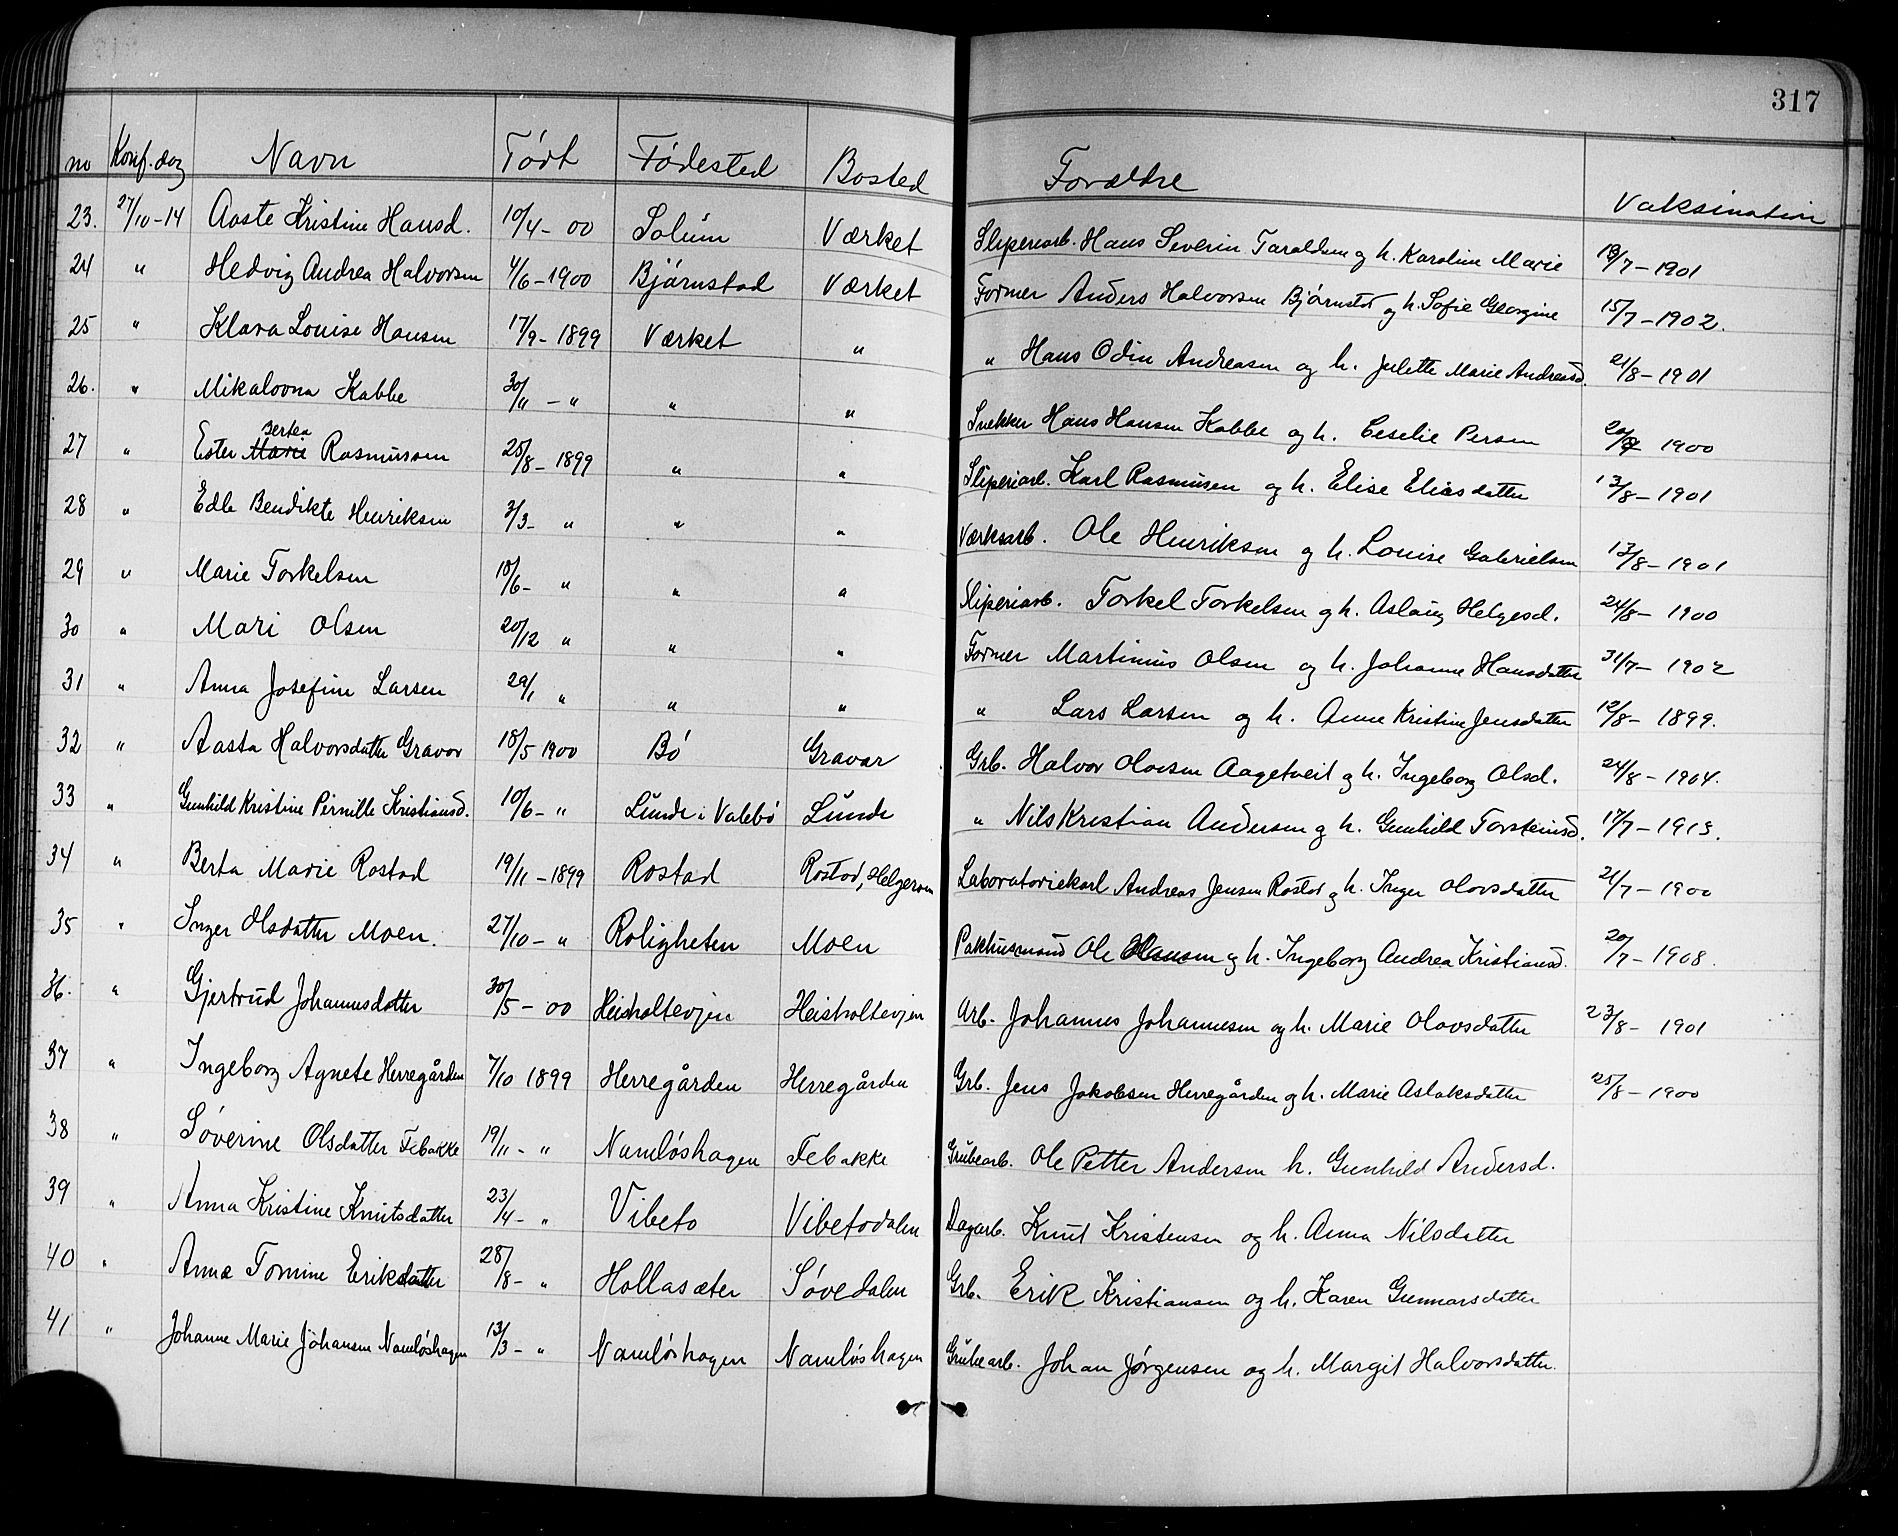 317
no Konf. dag Navn Født Fødested Bosted Forældre Vaksination
23. 27/10-14 Aaste Kristine Hansd. 10/4-00 Solum Værket Sliperiarb. Hans Severin Taraldsen og h. Karoline Marie 19/7-1901
24 " Hedvig Andrea Halvorsen 4/6-1900 Bjørnstad Værket Former Anders Halvorsen Bjørnstd og h. Sofie Georgine 15/7-1902.
25 " Klara Louise Hansen 17/9-1899 Værket " " Hans Odin Andreasen og h. Julette Marie Andreasd. 21/8-1901
26. " Mikalovna Kabbe 30/11-" " " Snekker Hans Hansen Kabbe og h. Ceselie Persen 1900
27 " Ester Bertea Rasmussen 25/8-1899 " " Sliperiarb. Karl Rasmusen og h. Elise Eliasdatter 13/8-1901
28 " Edle Bendikte Henriksen 3/3- " " " Værksarb. Ole Henriksen og h. Louise Gabrielsen 13/8-1901
29 " Marie Torkelsen 18/6- " " " Sliperiarb. Torkel Torkelsen og h. Aslaug Helgesd. 24/8-1900
30 " Mari Olsen 20/12 " " " Former Martinius Olsen og h. Johanne Hansdatter 31/7-1902
31 " Anna Josefine Larsen 29/1 " " " " Lars Larsen og h. Anne Kristine Jensdatter 12/8-1899.
32 " Aasta Halvorsdatter Gravar 18/5 1900 Bø Gravar Grb. Halvor Olovsen Aagetveit og h. Ingeborg Olsd. 24/8-1904.
33 " Gunhild Kristine Pernille Kristiansd. 10/6-" Lunde i Valebø Lunde " Nils Kristian Andersen og h. Gunhild Torsteinsd. 17/7-1913.
34 " Berta Marie Rostad 19/11-1899 Rostad Rostad, Helgeroa Laboratoriekarl Andreas Jensen Rostad og h. Inger Olovsdatter 21/7-1900
35 " Inger Olsdatter Moen. 27/10-" Roligheten Moen Pakhusmand Ole Hansen og h. Ingeborg Andrea Kristiansd. 20/7-1908.
36. " Gjertrud Johannesdatter 30/5-00 Heisholtevjen Heisholtevjen Arb. Johannes Johannesen og h. Marie Olovsdatter 23/8-1901
37 " Ingeborg Agnete Herregården 7/10 1899 Herregården Herregården Grb. Jens Jakobsen Herregården og h. Marie Aslaksdatter 25/8-1900
38 " Søverine Olsdatter Febakke 19/11-" Namløshagen Febakke Grubearb. Ole Petter Andersen h. Gunhild Andersd.
39 " Anna Kristine Knutsdatter 23/4-" Vibeto Vibetodalen Dagarb. Knut Kristensen og h. Anna Nilsdatter
40 " Anne Tomine Eriksdatter 28/8-" Hollasæter Søvedalen Grb. Erik Kristiansen og h. Karen Gunnarsdatter
41 " Johanne Marie Johansen Namløshagen 13/3-" Namløshagen Namløshagen Grubearb. Johan Jørgensen og h. Margit Halvorsdatter.